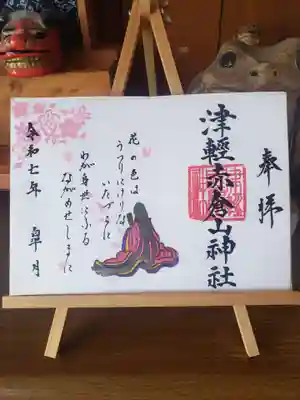 奉拝
津軽赤倉山神社
花の色は
うつりにけりな
いたづらに
わが身世にふる
ながめせしまに
令和七年 皐月